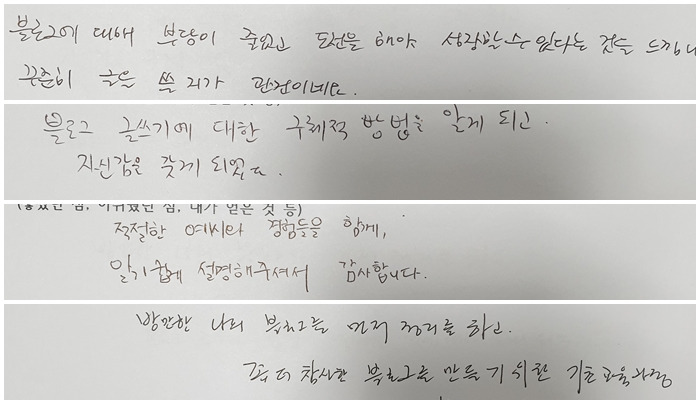 블로그에 대해 부담이 줄었고 도전을 해야 성장할 수 있다는 것을 느낍니
꾸준히 글을 쓸 지가 관건이네요.
블로그 글쓰기에 대한 구체적 방법을 알게 되고.
자신감을 갖게 되었다.
(좋았던 점, 아쉬웠던 점, 내가 얻은 것 등)
적절한 예시와 경험들을 함께,
알기 쉽게 설명해주셔서 감사합니다.
방만한 나의 블로그를 먼저 정리를 하고.
좀 더 참신한 블로그를 만들기 위한 기초교육과정